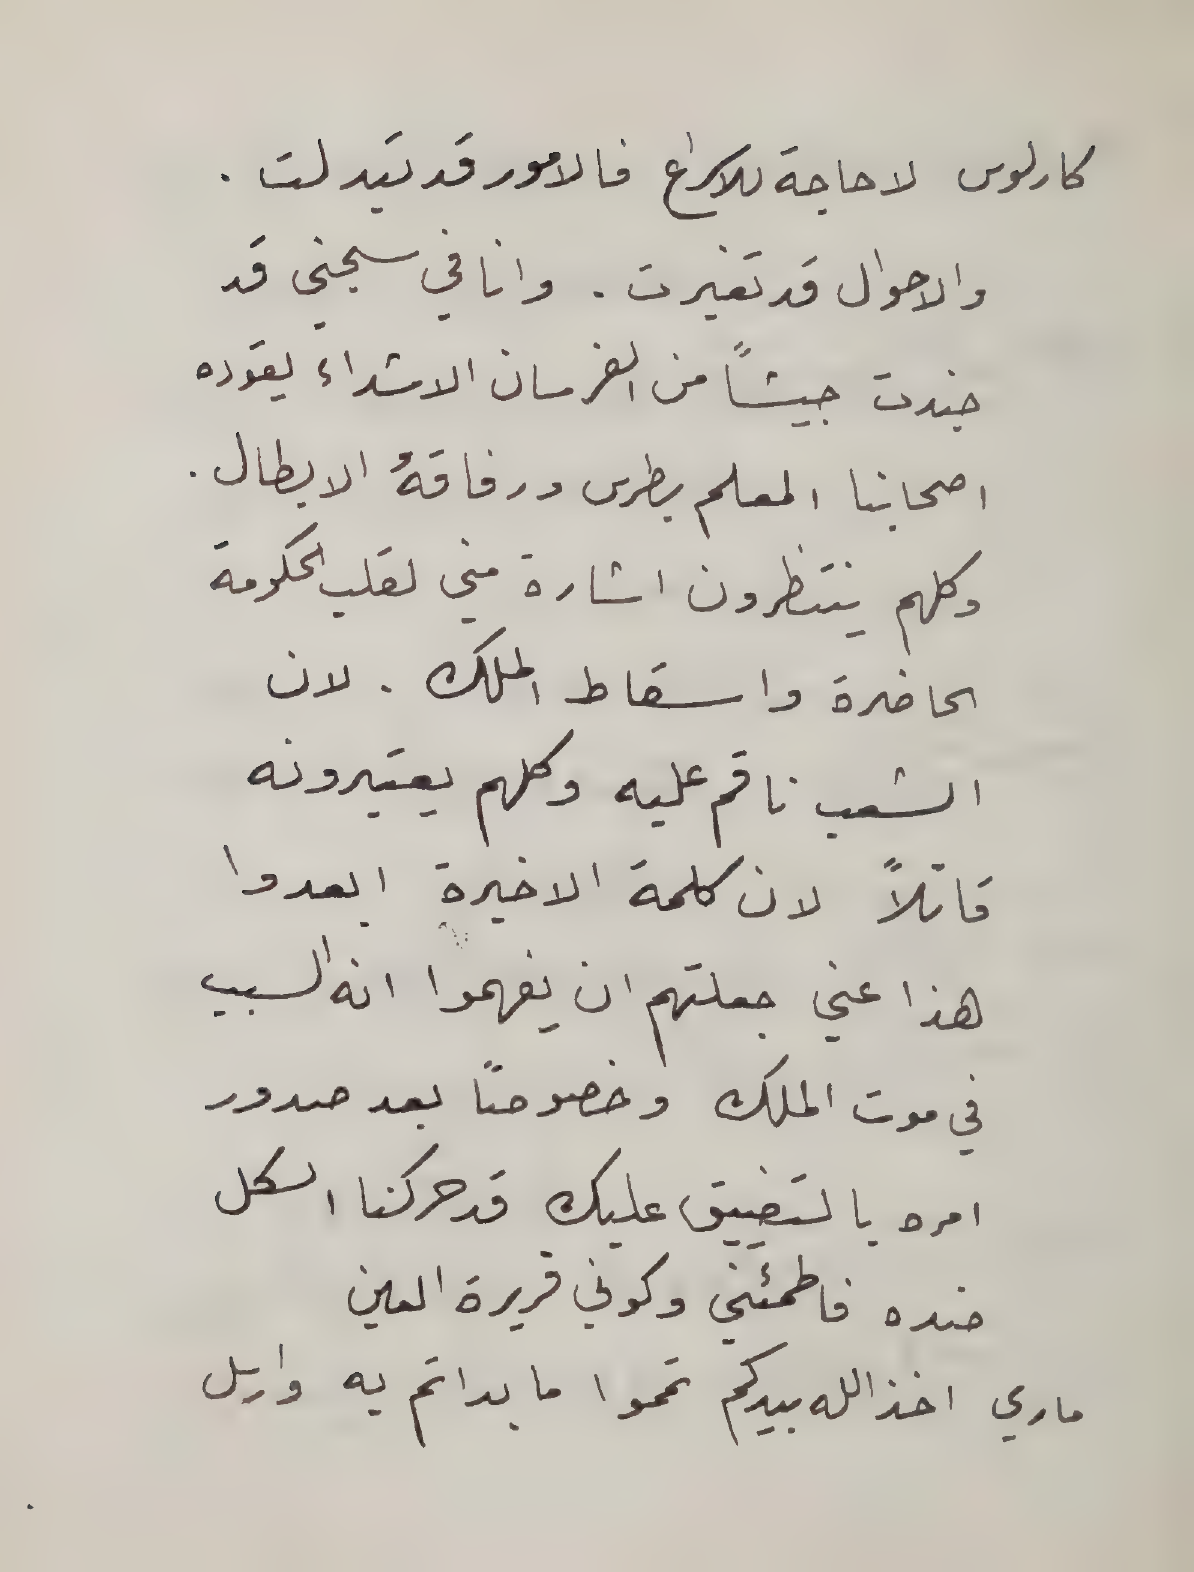 كارلوس لا حاجة للاكراع فالامور قد تبدلت .
والاحوال قد تغيرت . وانا في سجني قد
جندت جيشاً من الفرسان الاشداء يقوده
اصحابنا المعلم بطرس ورفاقهُ الابطال .
وكلهم ينتظرون اشارة مني لقلب الحكومة
الحاضرة واسقاط الملك . لان
الشعب ناقم عليه وكلهم يعتبرونه
قاتلاً لان كلمة الاخيرة ابعدوا
هذا عني جعلتهم ان يفهموا انه السبب
في موت الملك وخصوصاً بعد صدور
امره بالتضييق عليك قد حركنا الكل
ضده فاطمئني وكوني قريرة العين
ماري اخذ الله بيدكم تمموا ما بداتم به وارسل